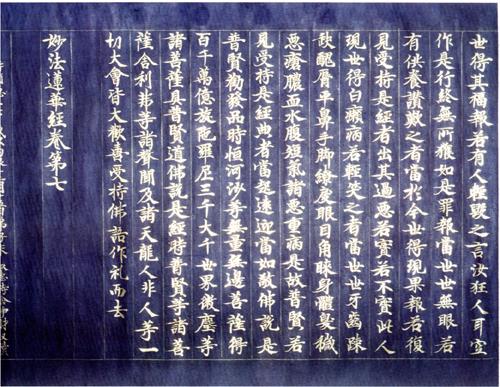 世得其福報若有人輕毀之言汝狂人耳空
作是行終無所獲如是罪報當世世無眼若
有供養讚歎之者當於今世得現果報若復
見受持是經者出其過惡若實若不實此人
現世得白癩病若輕笑之者當世世牙齒踈
缺醜脣平鼻手脚繚戾眼目角睞身體臭穢
惡瘡膿血水腹短氣諸惡重病是故普賢若
見受持是經典者當起遠迎當如敬佛說是
普賢勸發品時恒河沙等無量無邊菩薩得
百千萬億旋陀羅尼三千大千世界微塵等
諸菩薩具普賢道佛說是經時普賢等諸菩
薩舍利弗等諸聲聞及諸天龍人非人等一
切大會皆大歡喜受持佛語作礼而去
妙法蓮華經卷第七